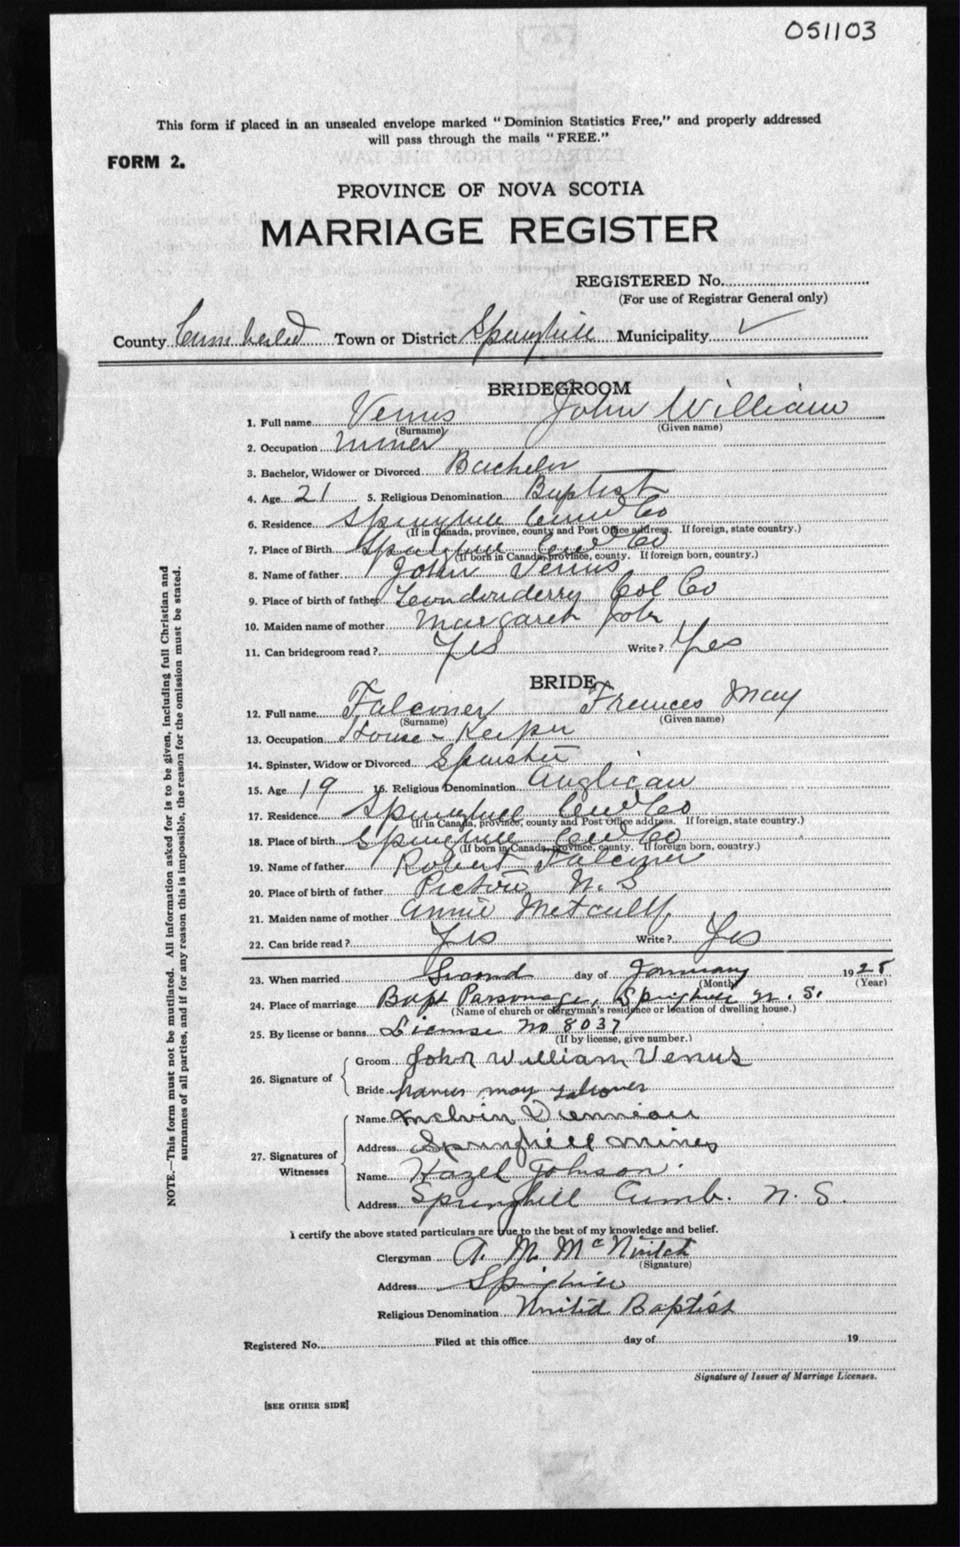 051103
This form if placed in an unsealed envelope marked "Dominion Statistics Free," and properly addressed
will pass through the mails "FREE."
FORM 2.
PROVINCE OF NOVA SCOTIA
MARRIAGE REGISTER
REGISTERED No.
(For use of Registrar General only)
County Cumberland Town or District Springhill Municipality ✓
BRIDEGROOM
1. Full name Venus John William
(Surname) (Given name)
2. Occupation Miner
3. Bachelor, Widower or Divorced Bachelor
4. Age 21 5. Religious Denomination Baptist
6. Residence Springhill Cum Co
(If in Canada, province, county and Post Office address. If foreign, state country.)
7. Place of Birth Springhill Cum Co
(If born in Canada, province, county. If foreign born, country.)
8. Name of father John Venus
9. Place of birth of father Londonderry Col Co
10. Maiden name of mother Margaret
11. Can bridegroom read? Yes Write? Yes
BRIDE
12. Full name Falconer Frances May
(Surname) (Given name)
13. Occupation House-Keeper
14. Spinster, Widow or Divorced Spinster
15. Age 19 16. Religious Denomination Anglican
17. Residence Springhill Cum Co
(If in Canada, province, county and Post Office address. If foreign, state country.)
18. Place of birth Springhill Cum Co
(If born in Canada, province, county. If foreign born, country.)
19. Name of father Robert Falconer
20. Place of birth of father Pictou N. S
21. Maiden name of mother Annie Metcalf
22. Can bride read? Yes Write? Yes
23. When married Second day of January 1928
(Month) (Year)
24. Place of marriage Bapt Parsonage, Springhill N. S.
(Name of church or clergyman's residence or location of dwelling house.)
25. By license or banns License No 8037
(If by license, give number.)
26. Signature of
Groom John William Venus
Bride Frances May Falconer
27. Signatures of
Witnesses
Name Melvin
Address Springhill Mines
Name Hazel Johnson
Address Springhill Cumb. N. S.
I certify the above stated particulars are true to the best of my knowledge and belief.
Clergyman A. M. McNintch
(Signature)
Address Springhill
Religious Denomination United Baptist
Registered No. Filed at this office day of 19
Signature of Issuer of Marriage Licenses.
[SEE OTHER SIDE]
NOTE.—This form must not be mutilated. All information asked for is to be given, including full Christian and
surnames of all parties, and if for any reason this is impossible, the reason for the omission must be stated.